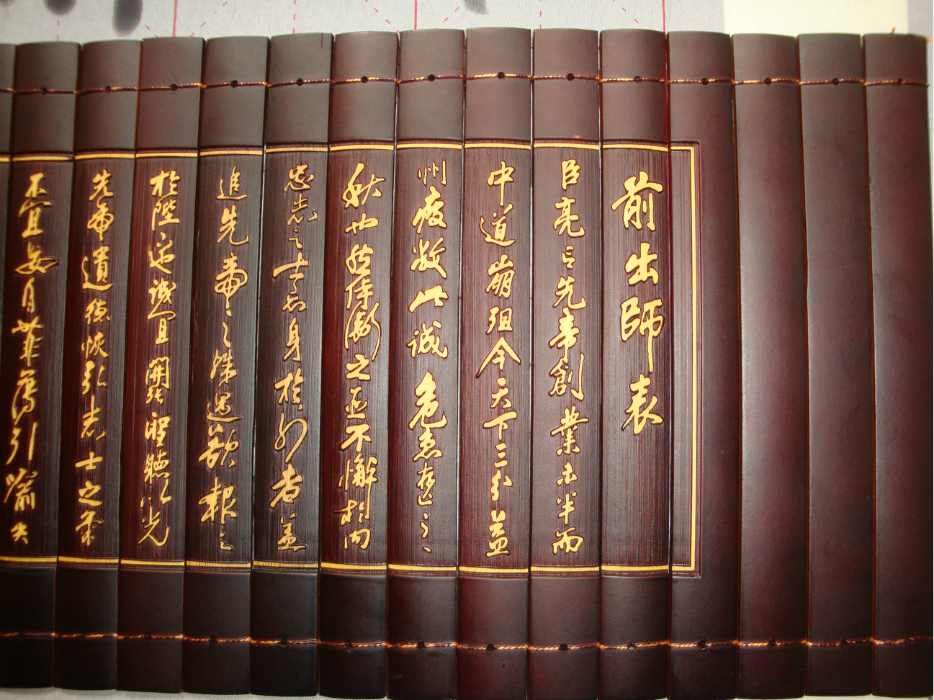 前出師表
臣亮言先帝創業未半而
中道崩殂今天下三分益
州疲敝此誠危急存亡之
秋也然侍衛之臣不懈於內
忠志之士忘身於外者蓋
追先帝之殊遇欲報之
於陛下也誠宜開張聖聽以光
先帝遺德恢弘志士之氣
不宜妄自菲薄引喻失